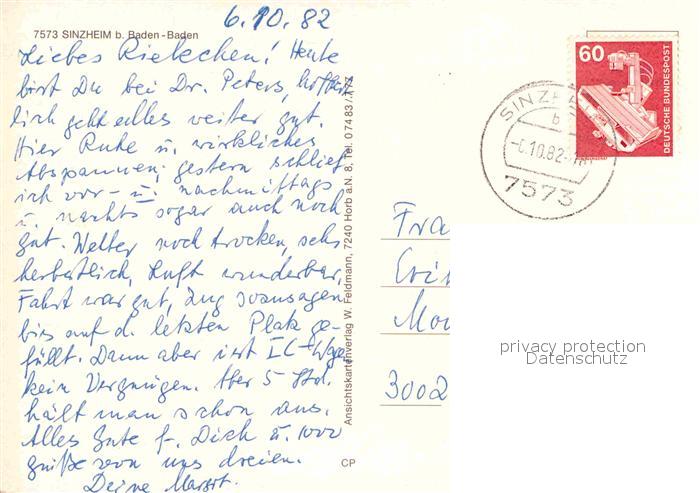 6.10.82
7573 SINZHEIM b. Baden-Baden
Liebes Rielechen! Heute
bist Du bei Dr. Peters, hoffent-
lich geht alles weiter gut.
Hier Ruhe u. wirkliches
Abspannen, gestern schlief
ich vor- u. nachmittags
u. nachts sogar auch noch
gut. Wetter noch trocken, sehr
herbstlich, Luft wunderbar.
Fahrt war gut, Zug sozusagen
bis auf d. letzten Platz ge-
füllt. Dann aber ist IC-Wagen
kein Vergnügen. Aber 5 Std.
hält man schon aus.
Alles Gute f. Dich u. 1000
Grüße von uns dreien.
Deine Margot.
Ansichtskartenverlag W. Feldmann, 7240 Horb a.N. 8, Tel. 07483/
CP
60
DEUTSCHE BUNDESPOST
SINZH
b
-6.10.82
7573
Fra
Mo
3002
privacy protection
Datenschutz